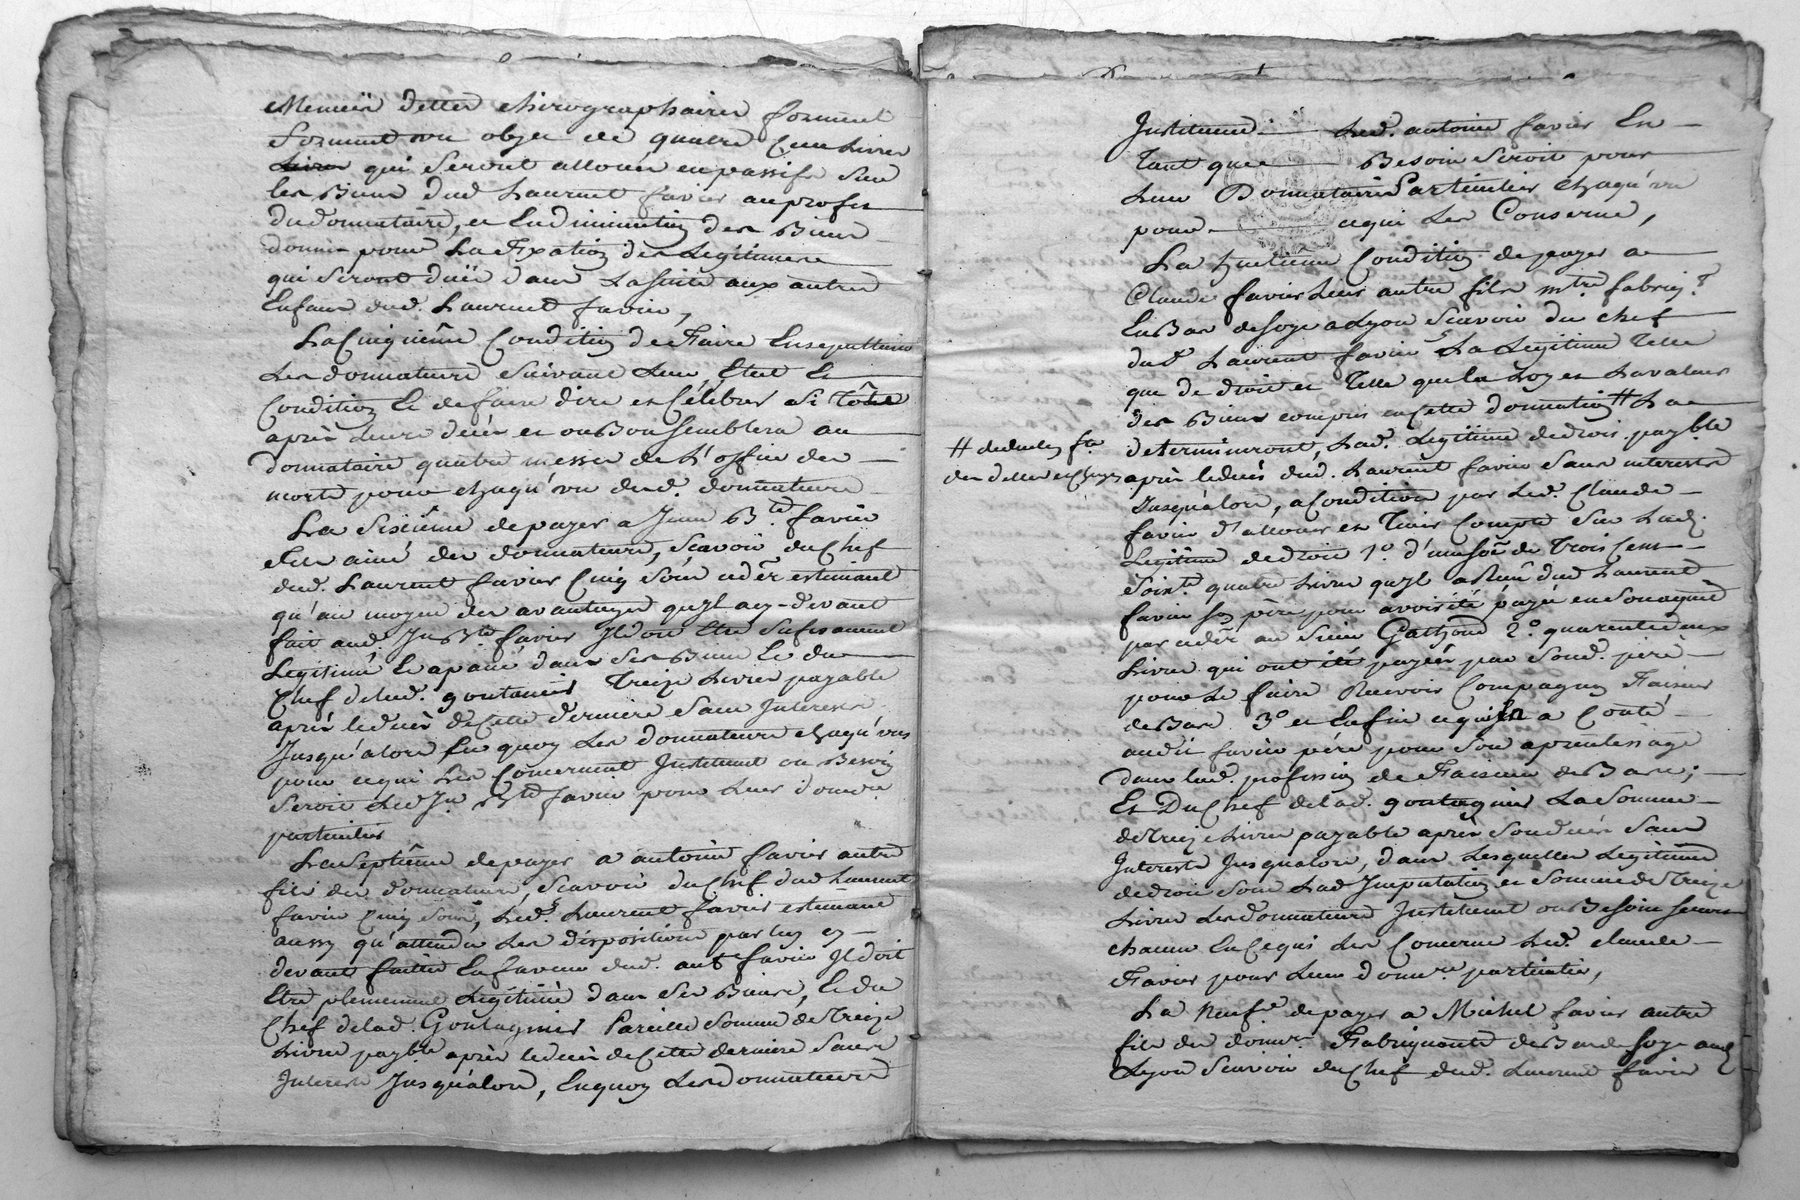 dettes chirographaires forment
forment un objet de quatre Cent Livres
Livres qui seront alloués en passifs sur
les Biens dud Laurent favier au profit
du donnataire, et En diminution des Biens
donnés pour La Fixation des Legitimes
qui seront duës dans La suite aux autres
Enfans dud. Laurent favier,
La Cinquiême Condition de Faire Ensepulturer
Les donnateurs suivant Leur Etat Et
Condition Et de faire dire et Célébrer
après Leurs décès et ou Bon semblera au
donnataire quatre messes de L'office des
morts pour chaqu'un desd. donnateurs
La Sixiême de payer a Jean Bte. favier
fils ainé des donnateurs, sçavoir du Chef
dud. Laurent favier Cinq sols estimant
qu'au moyen des avantages qu'il a cy-devant
fait aud. Jn Bte favier Il doit Etre sufisament
Legitimé Et apané dans ses Biens Et du
Chef de lad. goutanier Treize Livres payable
après le decès de Cette dernière sans Interests
Jusqu'alors En quoy Les donnateurs chaqu'un
pour ce qui Les Concernent Instituent ou Besoin
Seroit Led Jn. Bte favier pour Leur donnre
particulier
La Septiême de payer a antoine favier autre
fils des donnateurs, sçavoir du Chef dud Laurent
favier Cinq sols, Led. Laurent favier estimant
aussy qu'attendu Les dispositions par luy cy
devant faites En faveur dud. ante favier Il doit
Etre pleinement Legitimé dans ses Biens, Et du
Chef de lad. Pareille somme de Treize
Livres payble après le decès de Cette dernière sans
Interests Jusqu'alors, En quoy Les donnateurs
Instituent Led. antoine favier En
Tant que Besoin Seroit pour
Leur Donnataire Particulier chaqu'un
pour ce qui Les Conserne,
La huitième Condition de payer a
Claude favier Leur autre fils mtre fabriqt
En Bas de soye a Lyon sçavoir du chef
dud Laurent favier La Legitime Telle
que de droit et Telle que La Loy et La valeur
des Biens compris en Cette donnation # La
determineront, Lad. Legitime de droit payble
# deduction fte
des dettes et Charges
après le decès dud. Laurent favier sans interests
Jusqu'alors, a Condition par Led. Claude
favier d'allouer et Tenir Compte sur Lad.
Legitime de droit 1o. d'une somme de Trois Cent
soixte quatre Livres qu'il a dud Laurent
favier son père pour avoir été payé en
par au sieur 2o. quarente deux
Livres qui ont été payées par Sond. père
pour Le faire Recevoir Compagnon Faiseur
de Bas 3o et Enfin ce qu'il En a Couté
audit favier père pour son aprentissage
dans lad. profession de Faiseur de Bas;
Et Du Chef de lad. La Somme
de Treize Livres payable après son décès sans
Interests Jusqu'alors, dans Lesquelles Legitimes
de droit sous Lad Imputation et somme de Treize
Livres Les donnateurs Instituent ou Besoin seroit
chacun En Ce qui Les Concerne Led. claude
Favier pour Leur donnre particulier,
La Neufe. de payer a Michel favier autre
fils des donnre. Fabriquant de Bas de soye aud
Lyon Sçavoir du Chef dud. Laurent favier